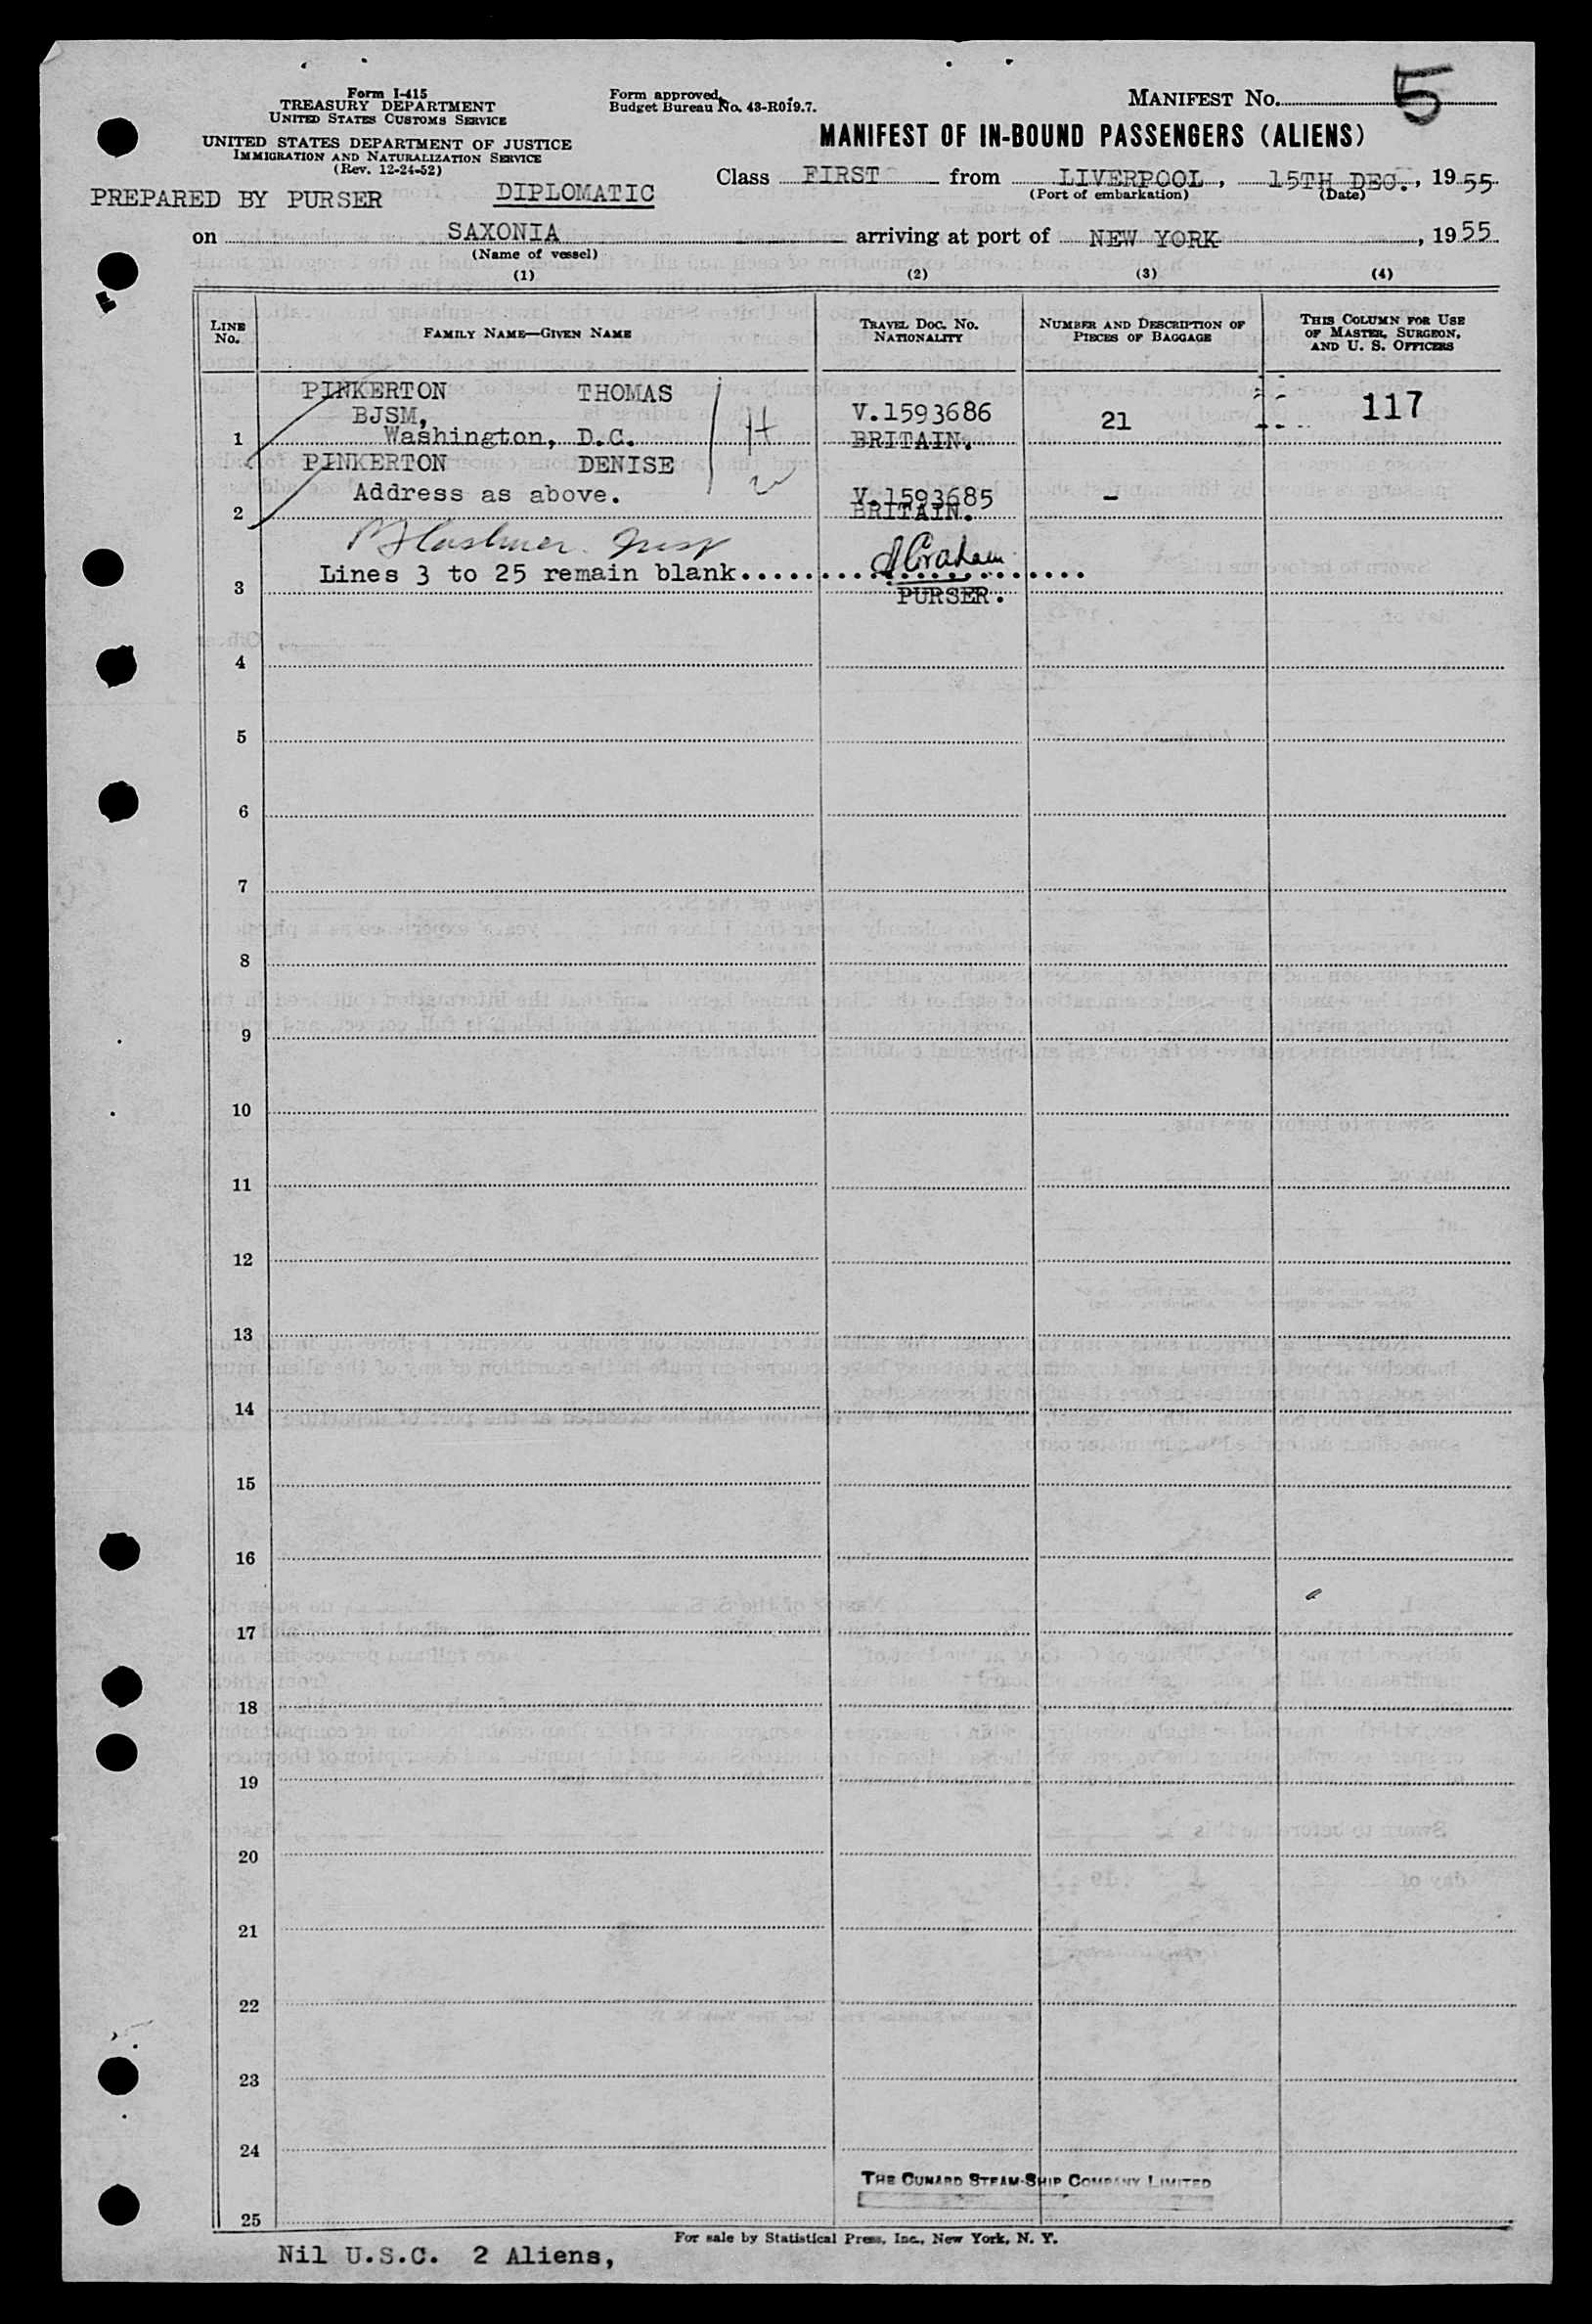 Form I-415
TREASURY DEPARTMENT
UNITED STATES CUSTOMS SERVICE
UNITED STATES DEPARTMENT OF JUSTICE
IMMIGRATION AND NATURALIZATION SERVICE
(Rev. 12-24-52)
Form approved.
Budget Bureau No. 43-R019.7.
MANIFEST No. 5
MANIFEST OF IN-BOUND PASSENGERS (ALIENS)
PREPARED BY PURSER DIPLOMATIC
Class FIRST from LIVERPOOL, 15TH DEC., 1955
(Port of embarkation) (Date)
on SAXONIA arriving at port of NEW YORK, 1955
(Name of vessel)
(1) (2) (3) (4)
LINE No. FAMILY NAME—GIVEN NAME TRAVEL DOC. No. NATIONALITY NUMBER AND DESCRIPTION OF PIECES OF BAGGAGE THIS COLUMN FOR USE OF MASTER, SURGEON, AND U. S. OFFICERS
PINKERTON THOMAS
BJSM, H V.1593686 21 117
1 Washington, D.C. BRITAIN.
PINKERTON DENISE
Address as above. W V.1593685 -
2 BRITAIN.
Graham
Lines 3 to 25 remain blank......................
3 PURSER.
4
5
6
7
8
9
10
11
12
13
14
15
16
17
18
19
20
21
22
23
24
THE CUNARD STEAM-SHIP COMPANY LIMITED
25
For sale by Statistical Press, Inc., New York, N. Y.
Nil U.S.C. 2 Aliens,